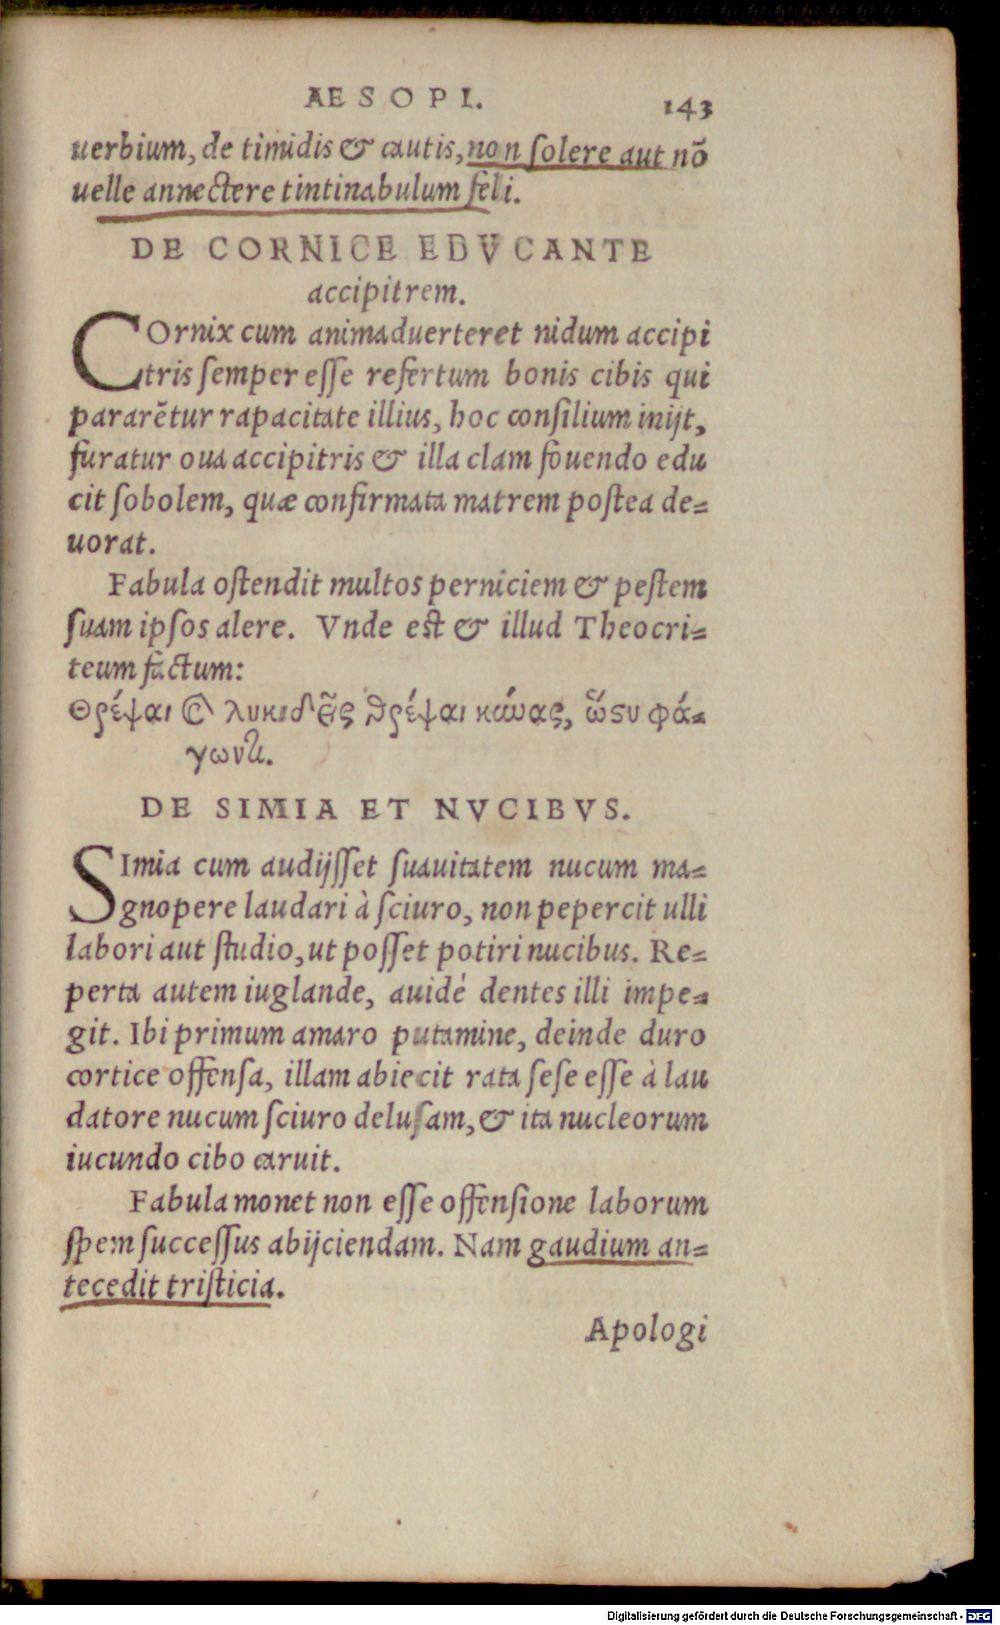 AESOPI. 143
uerbium, de timidis & cautis, non ſolere aut nō
uelle annectere tintinabulum feli.
DE CORNICE EDVCANTE
accipitrem.
COrnix cum animaduerteret nidum accipi
tris ſemper eſſe refertum bonis cibis qui
pararētur rapacitate illius, hoc conſilium inijt,
furatur oua accipitris & illa clam fouendo edu
cit ſobolem, quæ confirmata matrem poſtea de=
uorat.
Fabula oſtendit multos perniciem & peſtem
ſuam ipſos alere. Vnde est & illud Theocri=
teum factum:
Θρέψαι λυκιδεῖς θρέψαι κύνας, ὥς τυ φά=
γωντι.
DE SIMIA ET NVCIBVS.
SImia cum audijſſet ſuauitatem nucum ma=
gnopere laudari à ſciuro, non pepercit ulli
labori aut ſtudio, ut poſſet potiri nucibus. Re=
perta autem iuglande, auidè dentes illi impe=
git. Ibi primum amaro putamine, deinde duro
cortice offenſa, illam abiecit rata ſeſe eſſe à lau
datore nucum ſciuro deluſam, & ita nucleorum
iucundo cibo caruit.
Fabula monet non eſſe offenſione laborum
ſpem ſucceſſus abijciendam. Nam gaudium an=
tecedit triſticia.
Apologi
Digitalisierung gefördert durch die Deutsche Forschungsgemeinschaft - DFG